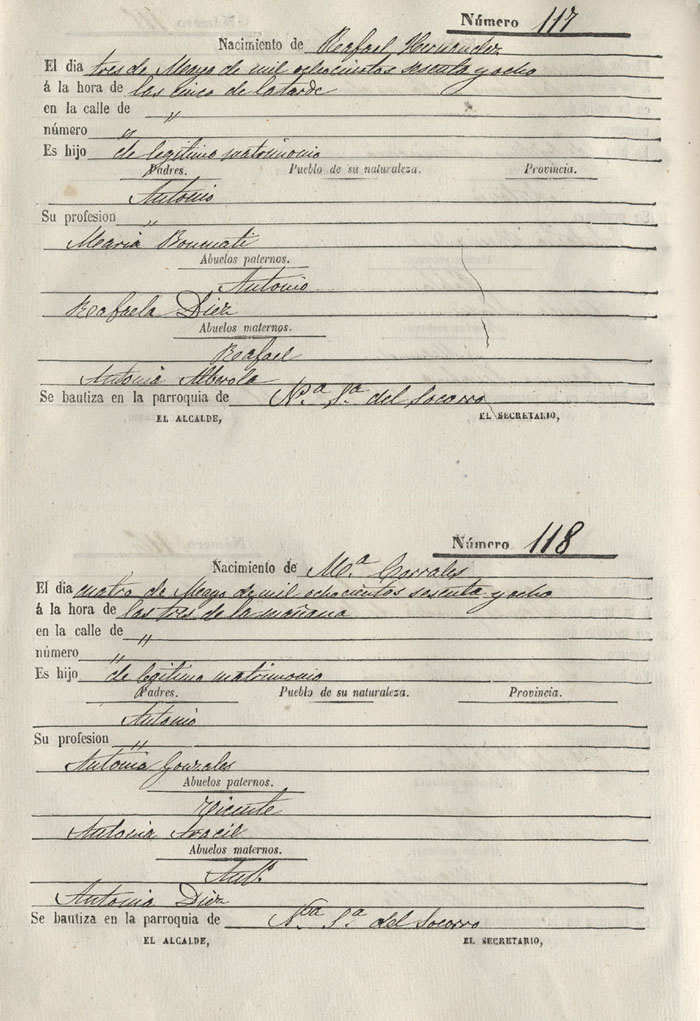 Número 117
Nacimiento de Rafael Hernandez
El dia tres de Mayo de mil ochocientos sesenta y ocho
á la hora de las cinco de la tarde
en la calle de "
número "
Es hijo de legitimo matrimonio
Padres. Pueblo de su naturaleza. Provincia.
Antonio
Su profesion "
Maria Bonmati
Abuelos paternos.
Antonio
Rafaela Diez
Abuelos maternos.
Rafael
Antonia Alberola
Se bautiza en la parroquia de N.ª S.ª del Socorro
EL ALCALDE, EL SECRETARIO,
Número 118
Nacimiento de M.ª Corrales
El dia cuatro de Mayo de mil ochocientos sesenta y ocho
á la hora de las tres de la mañana
en la calle de "
número "
Es hijo de legitimo matrimonio
Padres. Pueblo de su naturaleza. Provincia.
Antonio
Su profesion "
Antonia Gonzales
Abuelos paternos.
Vicente
Antonia Aracil
Abuelos maternos.
Ant.º
Antonia Diez
Se bautiza en la parroquia de Nª S.ª del Socorro
EL ALCALDE, EL SECRETARIO,